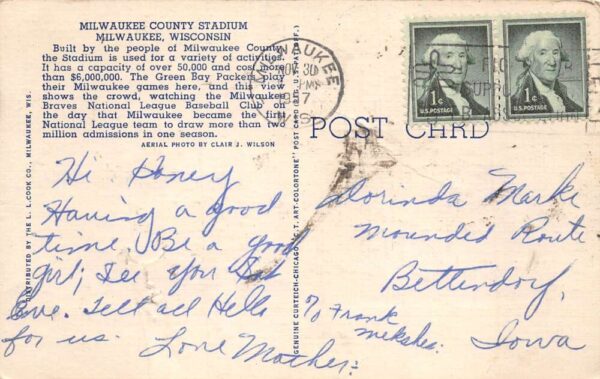 MILWAUKEE COUNTY STADIUM
MILWAUKEE, WISCONSIN
Built by the people of Milwaukee County,
the Stadium is used for a variety of activities.
It has a capacity of over 50,000 and cost more
than $6,000,000. The Green Bay Packers play
their Milwaukee games here, and this view
shows the crowd, watching the Milwaukee
Braves National League Baseball Club on
the day that Milwaukee became the first
National League team to draw more than two
million admissions in one season.
AERIAL PHOTO BY CLAIR J. WILSON
Hi Honey
Having a good
time. Be a good
girl; See you Sat
Eve. Tell all Hello
for us. Love Mother.
DISTRIBUTED BY THE L. L. COOK CO., MILWAUKEE, WIS.
GENUINE CURTEICH-CHICAGO "C. T. ART-COLORTONE" POST CARD (REG. U.S. PAT. OFF.)
MILWAUKEE
NOV 30
WIS
1¢
U.S. POSTAGE
1¢
U.S. POSTAGE
POST CARD
Dorinda Marke
Mounded Route
Bettendorf,
Iowa
To Frank